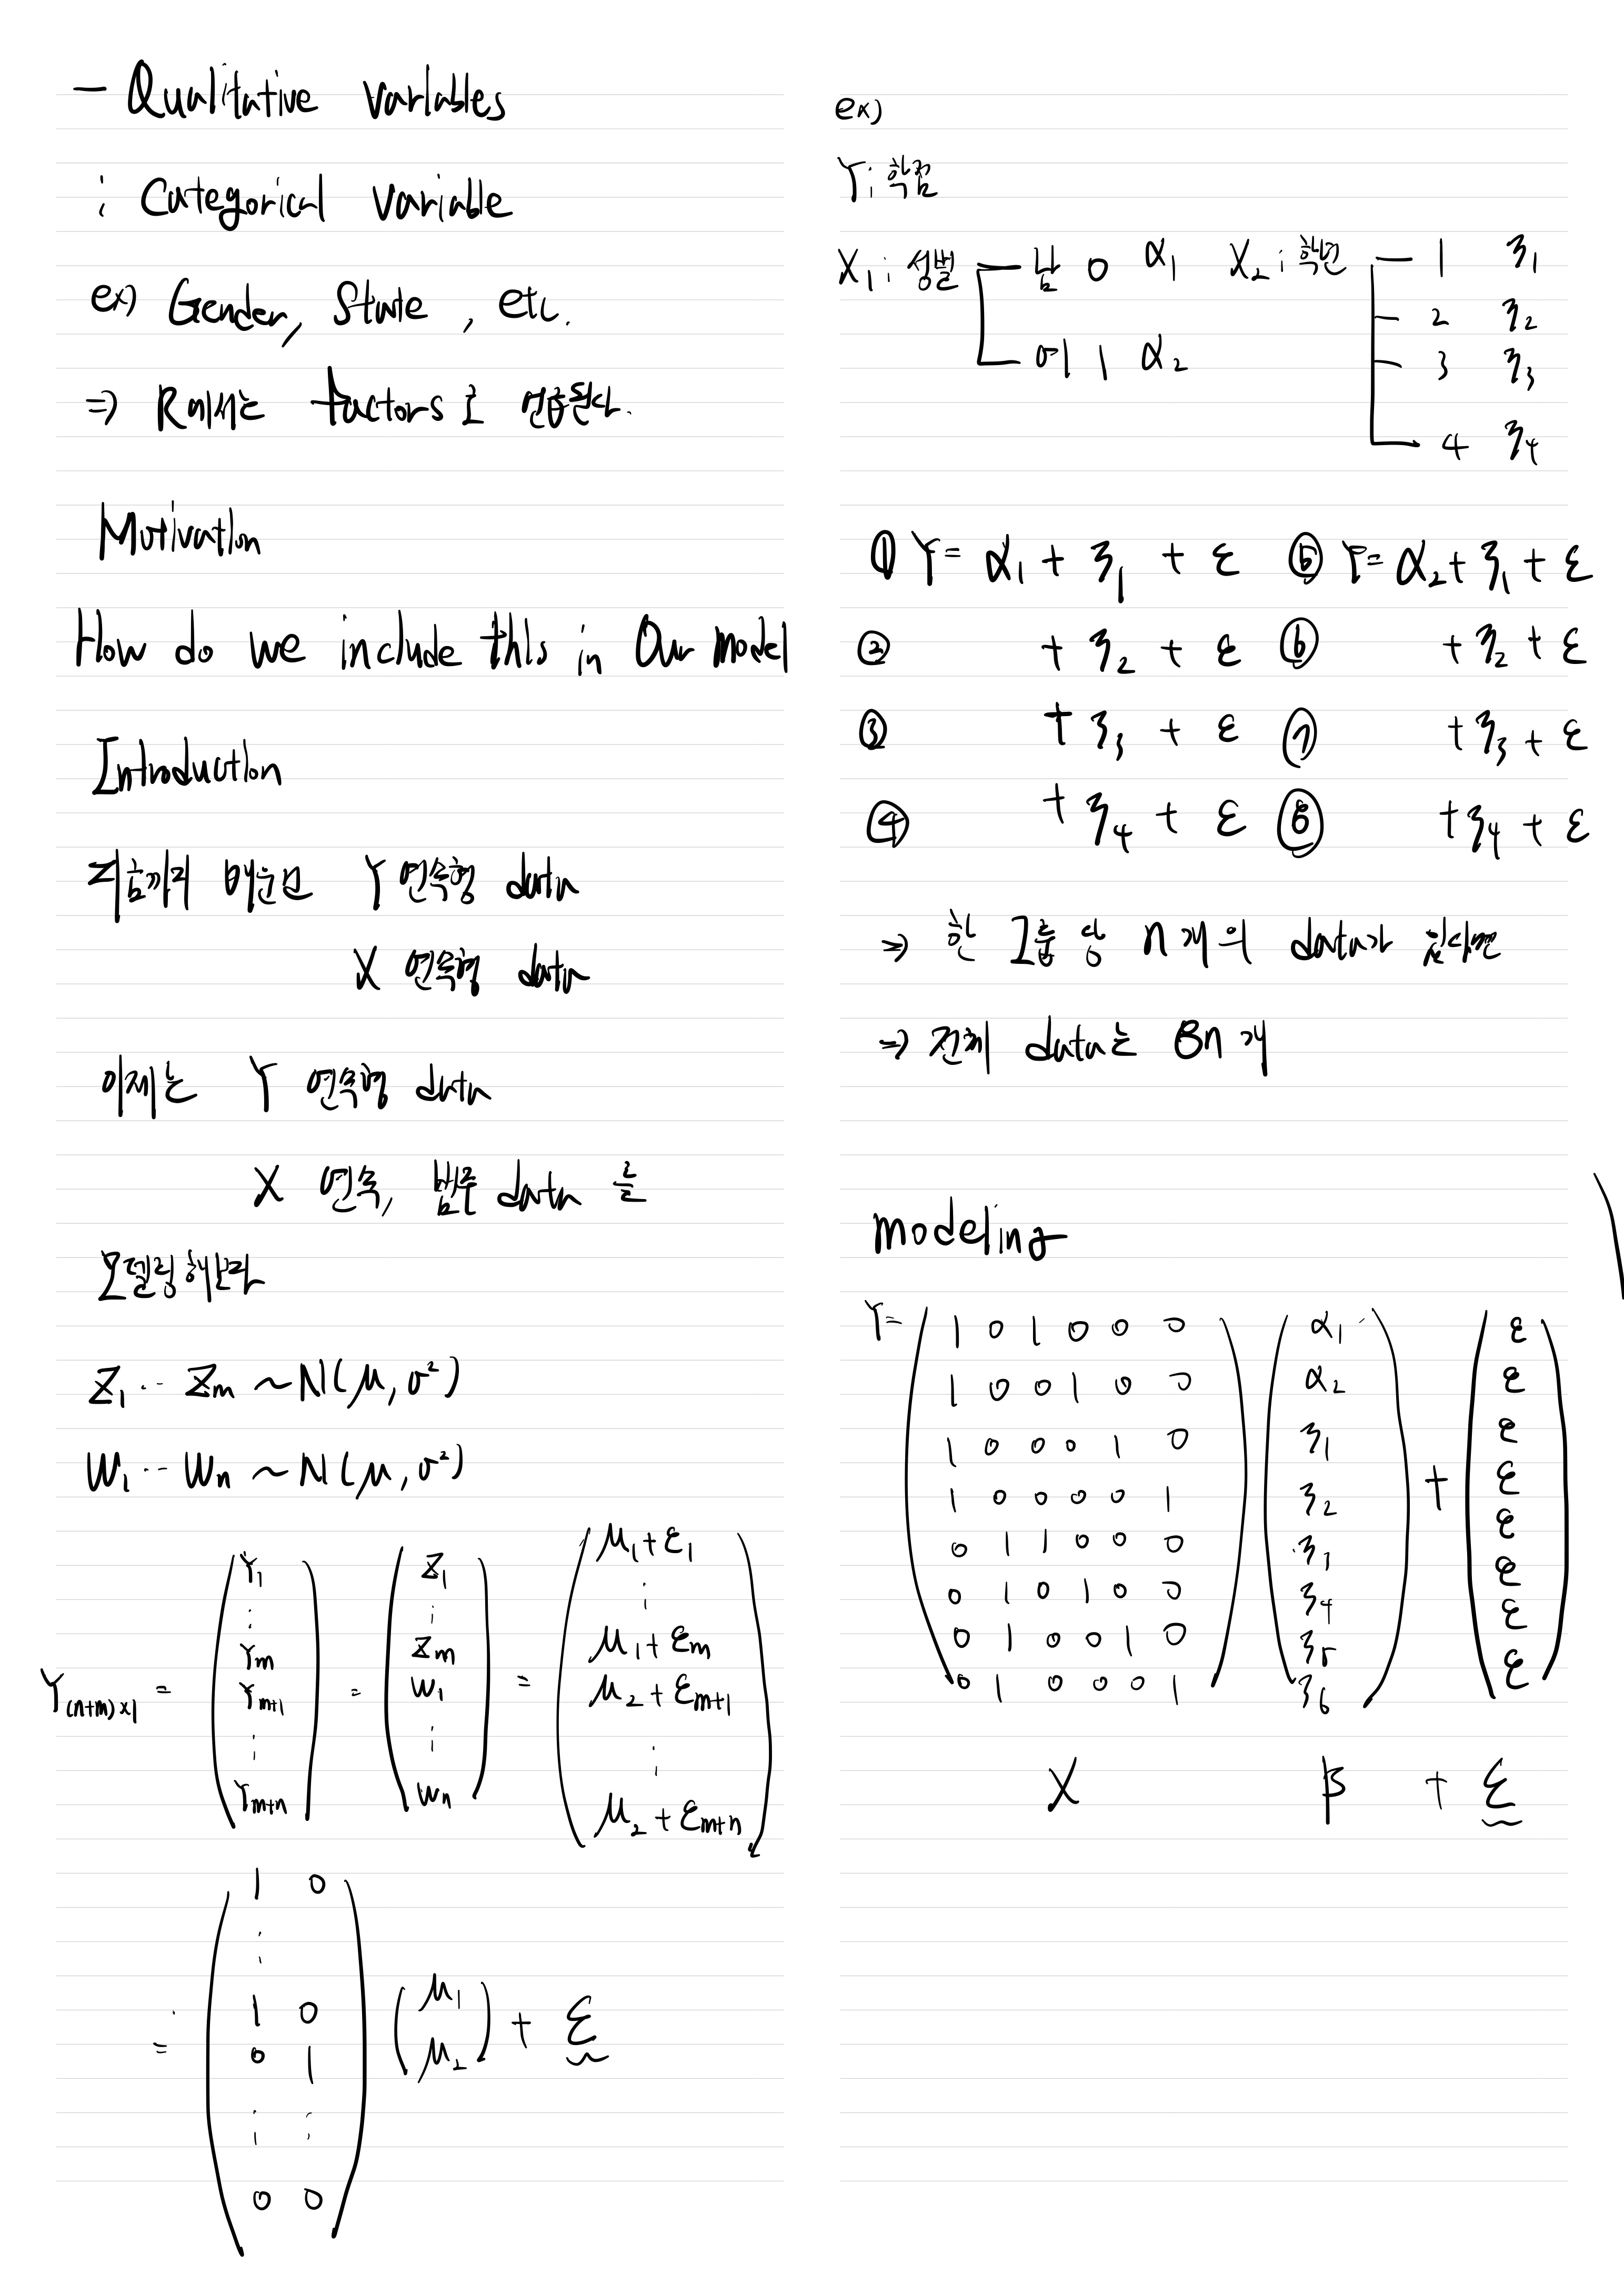 - Qualitative variables
: Categorical variable
ex) Gender, State, etc.
⇒ R에서는 factors로 연급된다.
Motivation
How do we include this in Our model
Introduction
지금까지 배운건 Y 연속형 data
X 연속형 data
이제는 Y 연속형 data
X 연속, 범주 data 를
모델링해본다
Z₁ ⋯ Zm ~ N(μ, σ²)
W₁ ⋯ Wn ~ N(μ, σ²)
Y(n+m)×1 = (Y₁ ⋮ Ym Ym+1 ⋮ Ym+n) = (Z₁ ⋮ Zm W₁ ⋮ Wn) = (μ₁+ε₁ ⋮ μ₁+εm μ₂+εm+1 ⋮ μ₂+εm+n)
= (1 0 ⋮ 1 0 0 1 ⋮ ⋮ 0 0) (μ₁ μ₂) + ε
ex)
Y: 학점
X₁: 성별 남 0 α₁ X₂: 학년 1 ξ₁
2 ξ₂
여 1 α₂ 3 ξ₃
4 ξ₄
① Y = α₁ + ξ₁ + ε ⑤ Y = α₂ + ξ₁ + ε
② + ξ₂ + ε ⑥ + ξ₂ + ε
③ + ξ₃ + ε ⑦ + ξ₃ + ε
④ + ξ₄ + ε ⑧ + ξ₄ + ε
⇒ 한 그룹 당 n개의 data가 있다면
⇒ 전체 data는 8n개
modeling
Y =
1 0 1 0 0 0 α₁ ε
1 0 0 1 0 0 α₂ ε
1 0 0 0 1 0 ξ₁ ε
1 0 0 0 0 1 ξ₂ + ε
0 1 1 0 0 0 ξ₃ ε
0 1 0 1 0 0 ξ₄ ε
0 1 0 0 1 0 ξ₅ ε
0 1 0 0 0 1 ξ₆ ε
X β + ε